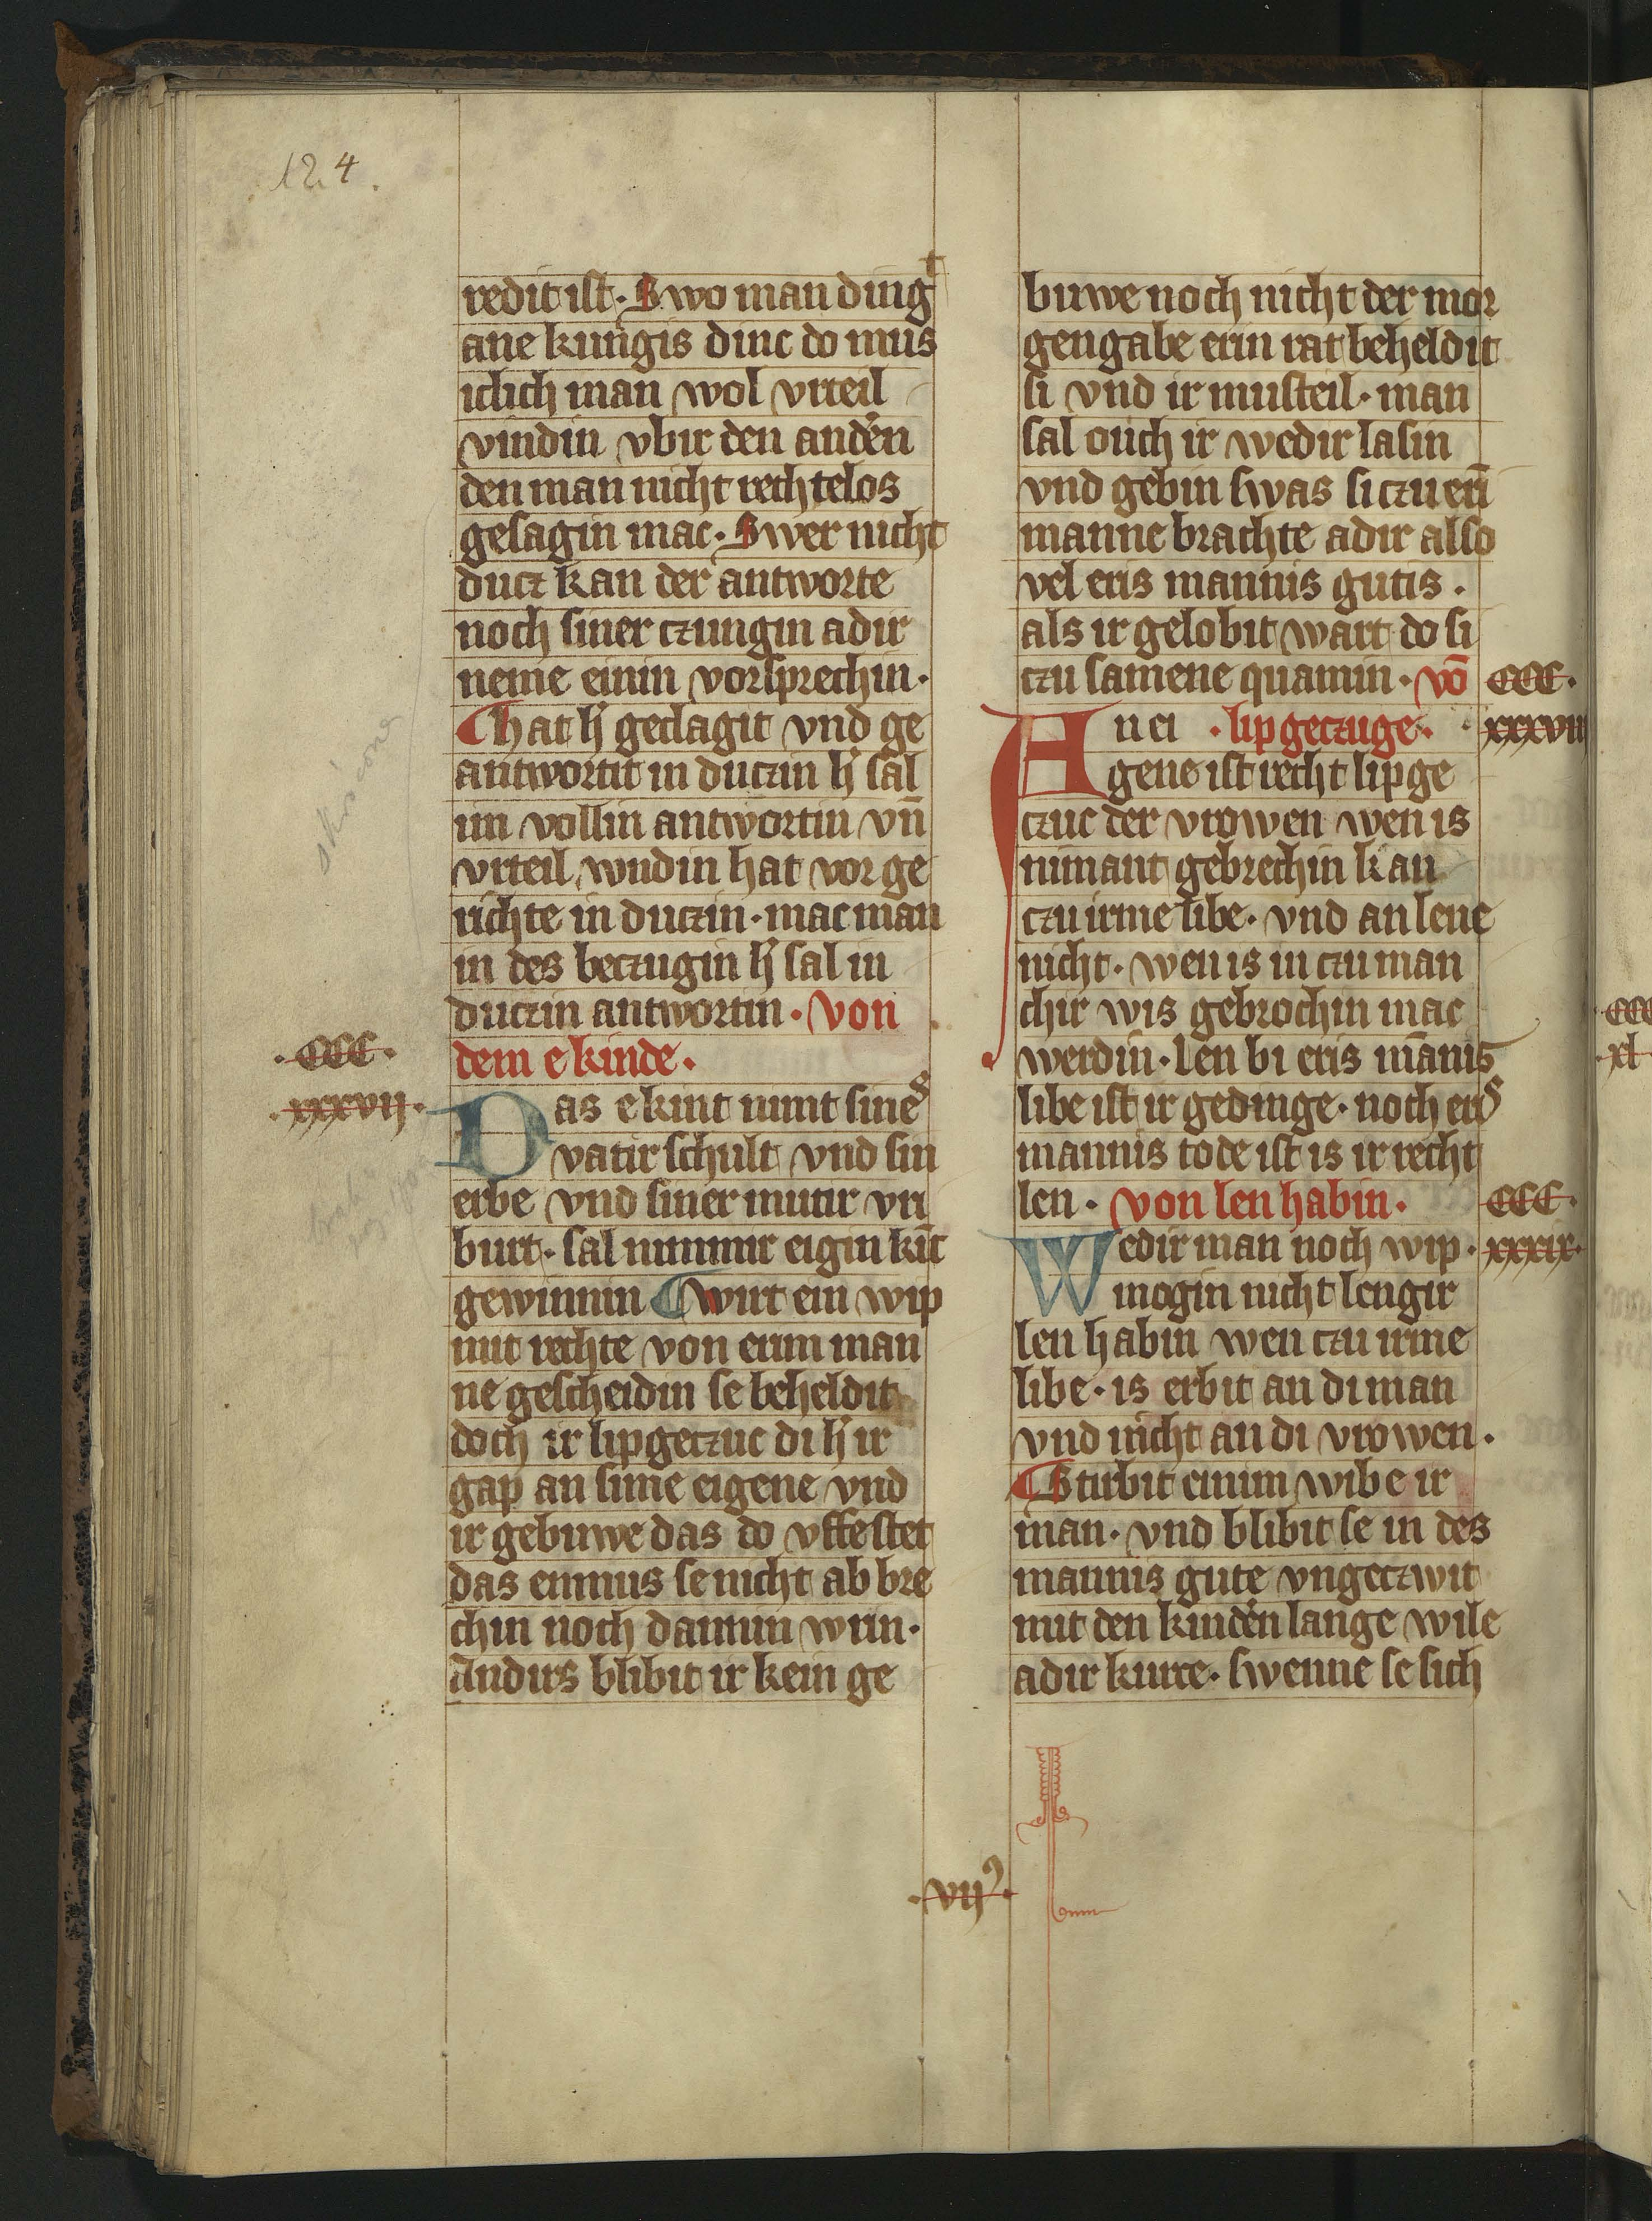 124.
redit ist. Swo man dingt
ane kungis dinc do mus
iclich man wol vrteil
vindin vbir den anden
den man nicht rechtelos
gesagin mac. Swer nicht
ducz kan der antworte
noch siner czungin adir
neme einin vorsprechin.
hat h' geclagit vnd ge
antwortit in duczin h' sal
im vollin antwortin vn̄
vrteil wndin hat vor ge
richte in duczin. mac man
in des beczugin h' sal in
duczin antwortin. von
.CCC. dem ekinde.
.xxxvij. Das ekint nimt sines
vatir schult vnd sin
erbe vnd siner mutir vri
burt. sal nimmir eigin kīt
gewinnin Wirt ein wip
mit rechte von erim man
ne gescheidin se beheldit
doch ir lipgeczuc di h' ir
gap an sime eigene vnd
ir gebuwe das do vffestet
das enmus se nicht ab bre
chin noch dannin wrin.
Andirs blibit ir kein ge
buwe noch nicht der mor
gengabe erin rat beheldit
si vnd ir musteil. man
sal ouch ir wedir lasin
vnd gebin swas si czu erī
manne brachte adir also
vel eris mannis gutis.
als ir gelobit wart do si
czu samene quamin. vō .CCC.
An ei .lipgeczuge. .xxxviij
gene ist recht lipge
czuc der vrowen wen is
nimant gebrechin kan
czu irme libe. vnd an lene
nicht. wen is in czu man
chir wis gebrochin mac
werdin. Len bi eris mānis
libe ist ir gedinge. noch eris
mannis tode ist is ir recht
len. von len habin. .CCC.
Wedir man noch wip .xxxix.
mogin nicht lengir
len habin wen czu irme
libe. is erbit an di man
vnd nicht an di vrowen.
Stirbit einim wibe ir
man. vnd blibit se in des
mannis gute vngeczwit
mit den kinden lange wile
adir kurce. swenne se sich
.vij.